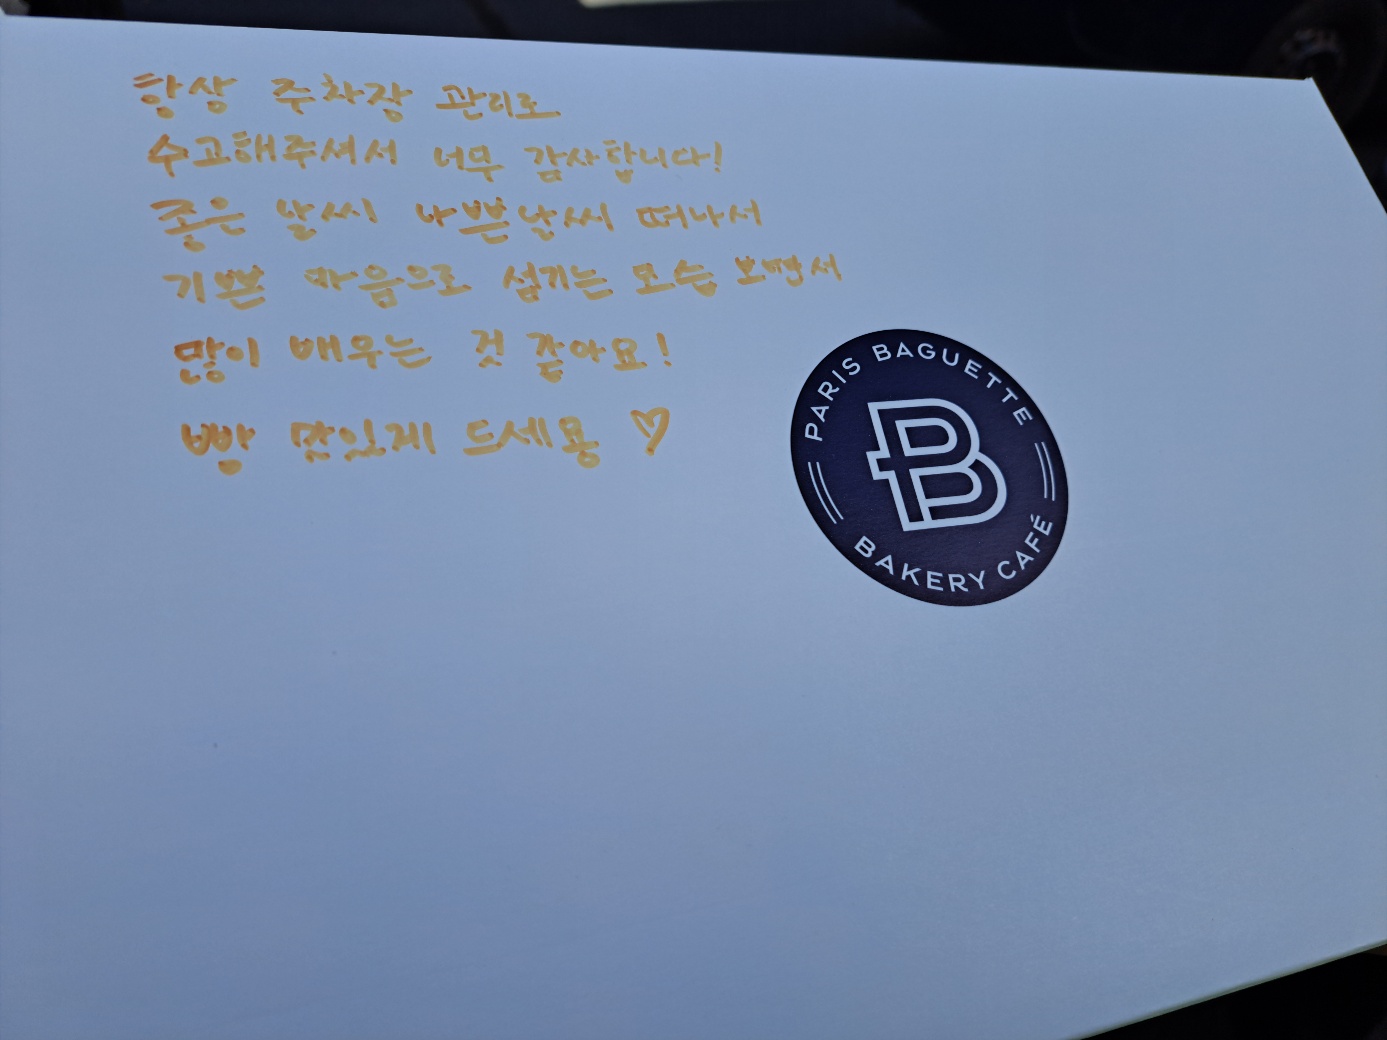 항상 주차장 관리로
수고해주셔서 너무 감사합니다!
좋은 날씨 나쁜날씨 떠나서
기쁜 마음으로 섬기는 모습 보면서
많이 배우는 것 같아요!
빵 맛있게 드세용 ♡
PARIS BAGUETTE
B
BAKERY CAFÉ